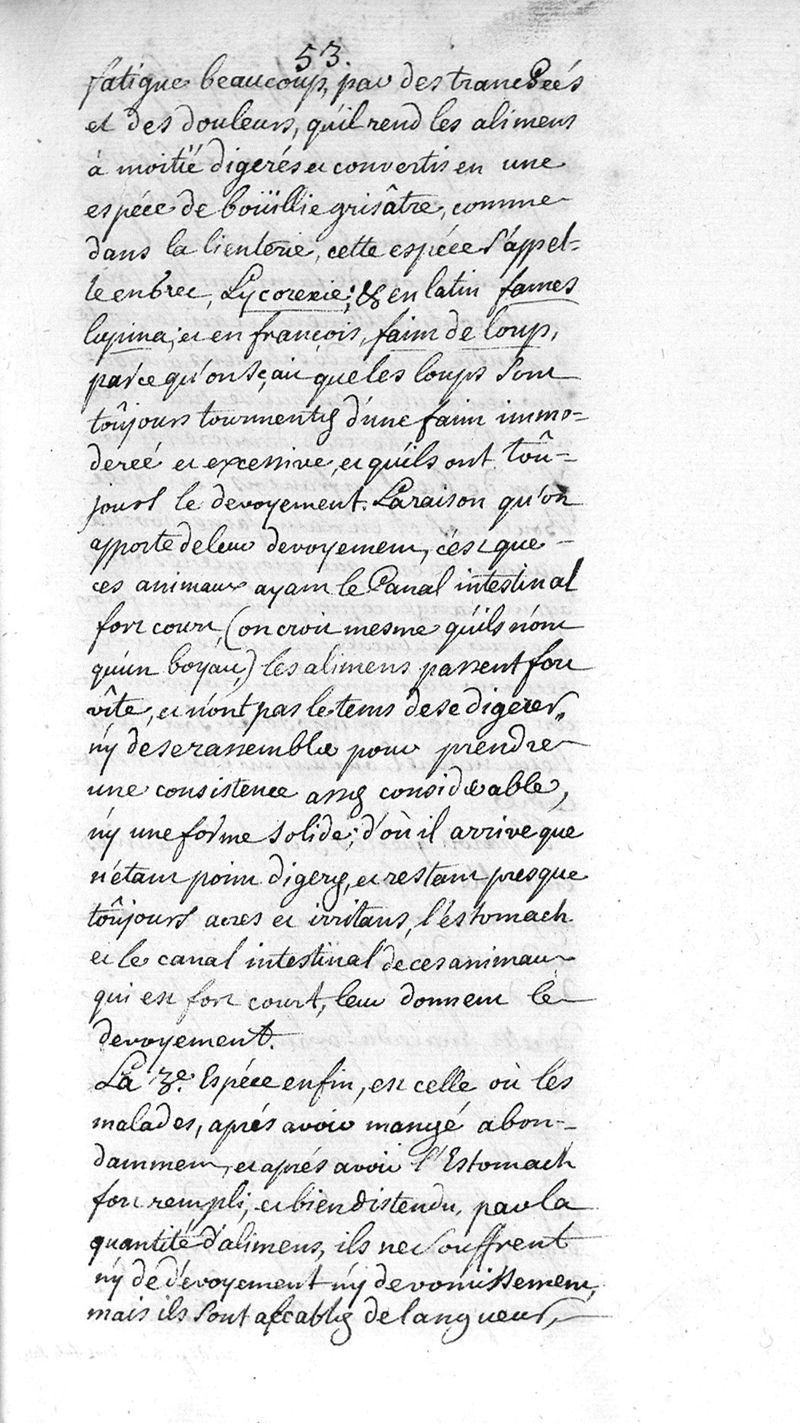 53.
fatigue beaucoup, par des tranchées
et des douleurs, qu'il rend les alimens
à moitié digerés et convertis en une
espéce de boüillie grisâtre, comme
dans la lienterie, cette espéce s'appel-
le en Grec, Lycorexie; & en latin fames
lupina; et en françois, faim de loup,
parce qu'on sçait que les loups sont
toûjours tourmentés d'une faim immo-
derée et excessive, et qu'ils ont toû-
jours le devoyement. La raison qu'on
apporte de leur devoyement, c'est que
ces animaux ayant le Canal intestinal
fort court, (on croit mesme qu'ils n'ont
qu'un boyau,) les alimens passent fort
vîte, et n'ont pas le tems de se digerer,
n'y de se rassembler pour prendre
une consistence assés considerable,
n'y une forme solide; d'où il arrive que
n'étant point digerés, et restant presque
toûjours acres et irritans, l'éstomach
et le canal intestinal de ces animaux
qui est fort court, leur donnent le
devoyement.
La 3e. Espéce enfin, est celle où les
malades, aprés avoir mangé abon-
dammen, et aprés avoir l'Estomach
fort rempli, et bien distendu, par la
quantité d'alimens, ils ne souffrent
n'y de dévoyement n'y de vomissement,
mais ils sont accablés de langueur,